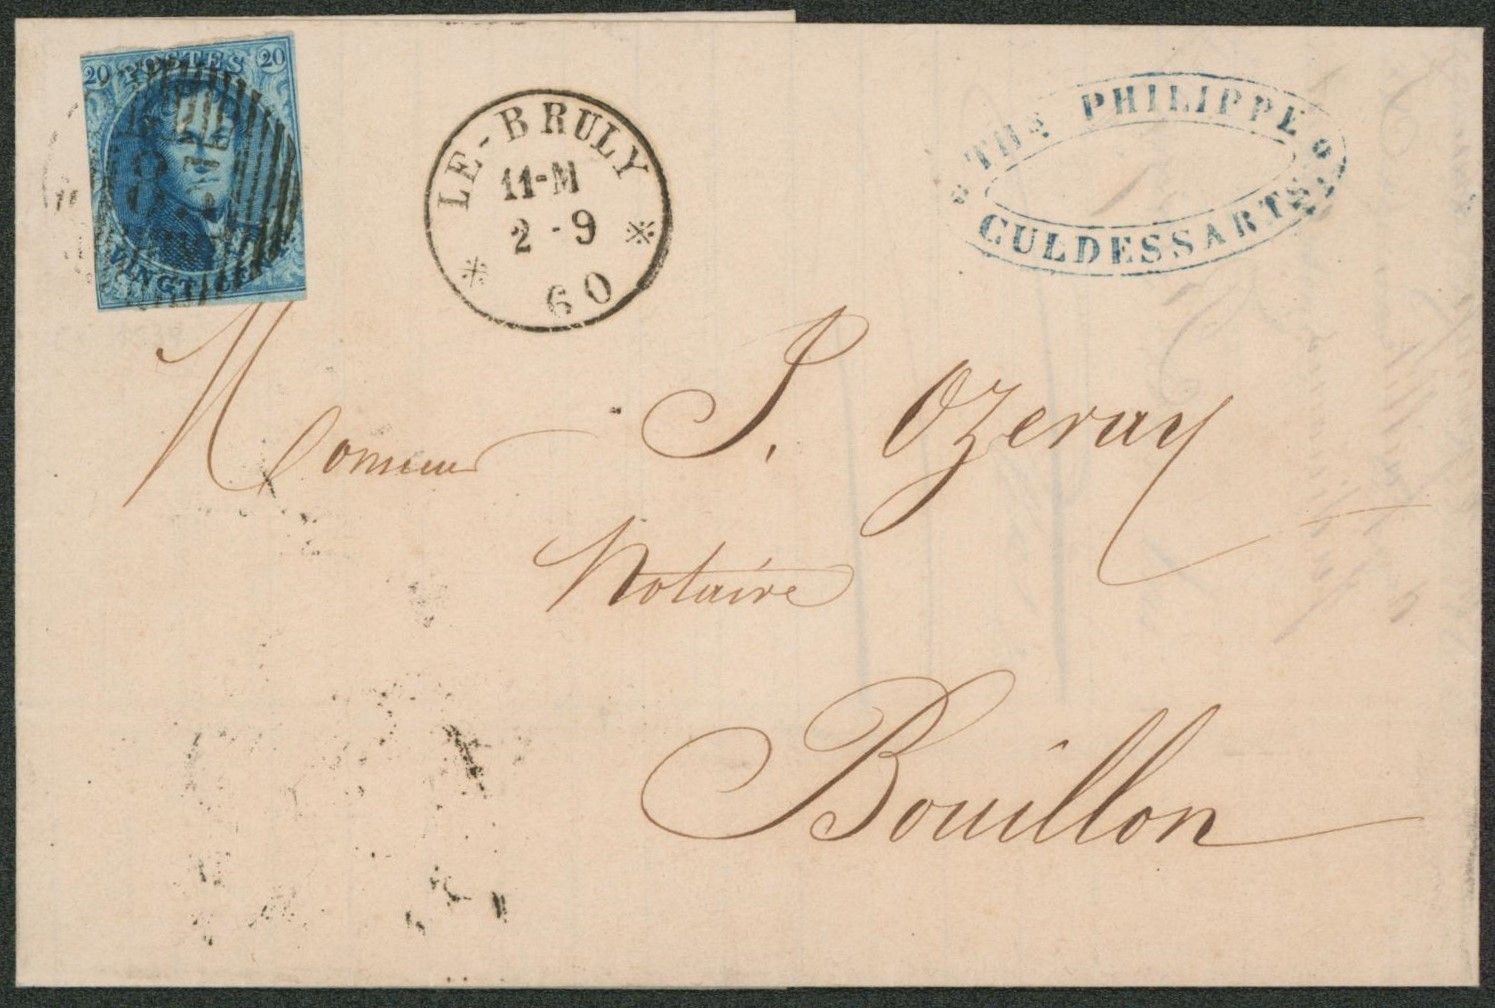 20 POSTES 20
VINGT CEN
LE-BRULY
11-M
2-9
60
THE PHILIPPE
CULDESSARTS
Monsieur J. Ozeray
Notaire
Bouillon